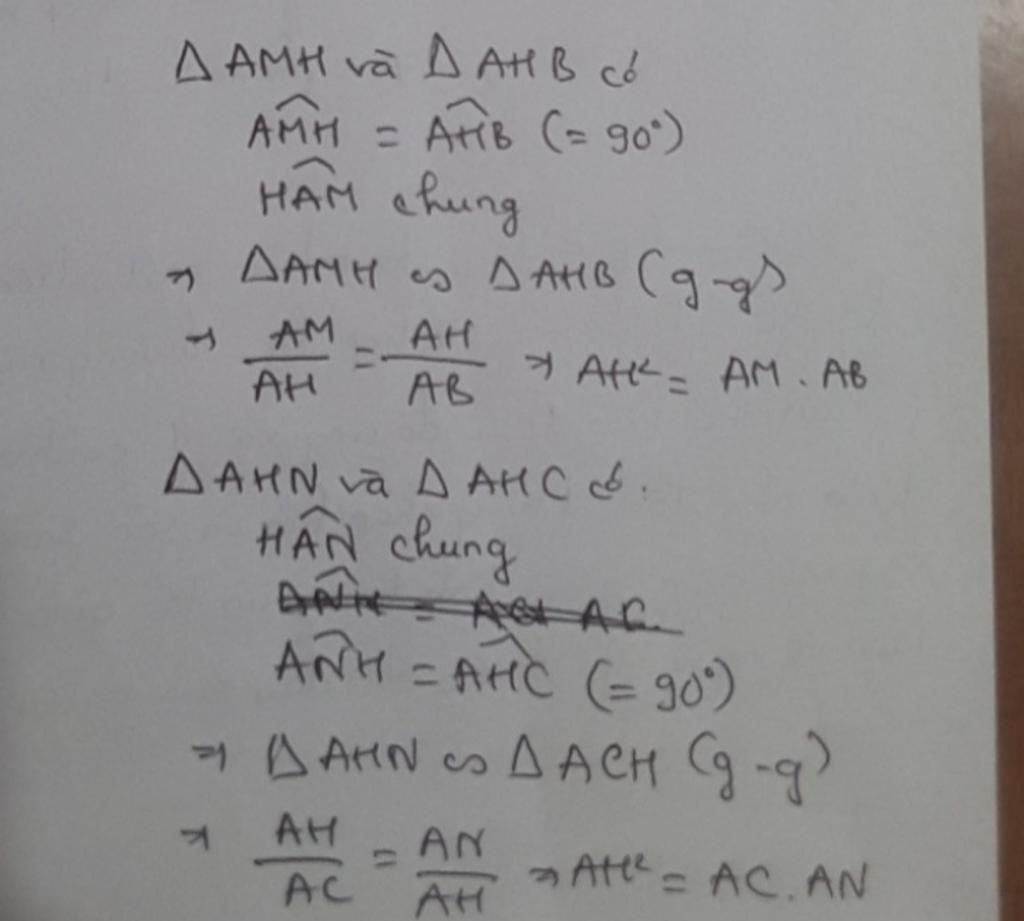 Δ AMH và Δ AHB có
AMĤ = AHB̂ (= 90°)
HAM̂ chung
⇒ ΔAMH ∽ ΔAHB (g-g)
⇒ AM/AH = AH/AB ⇒ AH² = AM . AB
Δ AHN và Δ AHC có.
HAN̂ chung
ANĤ = AHĈ (= 90°)
⇒ Δ AHN ∽ Δ ACH (g-g)
⇒ AH/AC = AN/AH ⇒ AH² = AC. AN